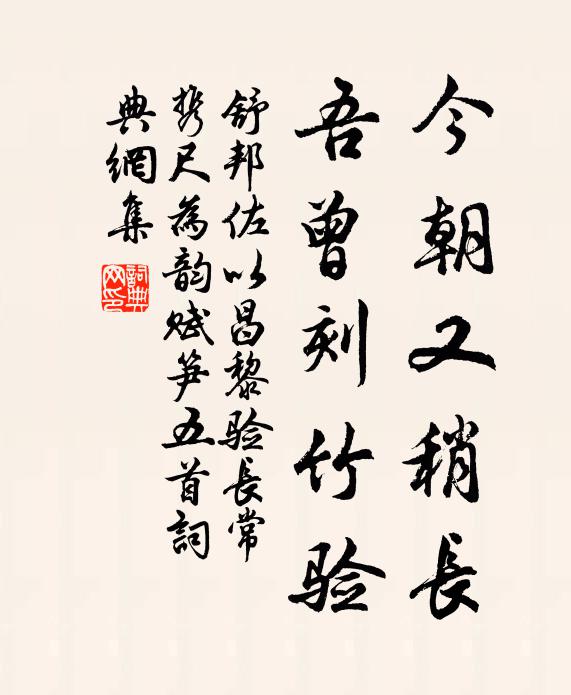 今朝又稍長
吾曾刻竹验
舒邦佐以昌黎验長常
携尺為韵赋笋五首詞
典網集
詞典网印